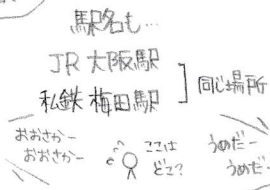 駅名も…
JR 大阪駅
私鉄 梅田駅
同じ場所
おおさかー
おおさかー
ここは
どこ?
うめだー
うめだー